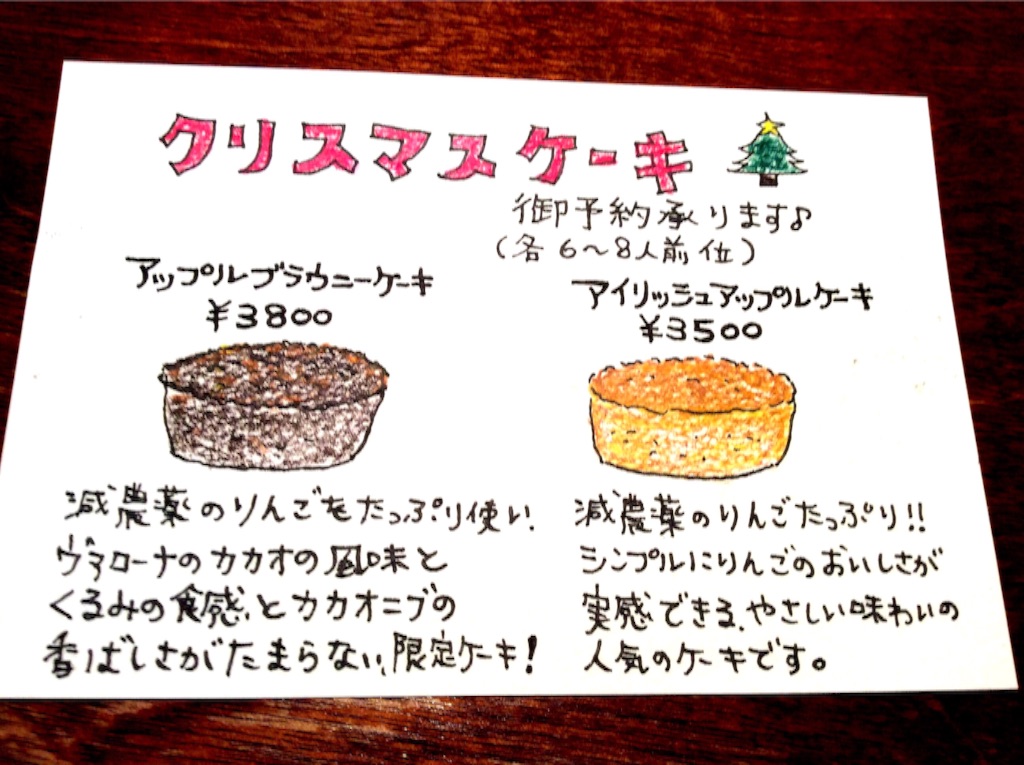 クリスマスケーキ
御予約承ります♪
(各6〜8人前位)
アップルブラウニーケーキ
¥3800
減農薬のりんごをたっぷり使い
ヴァローナのカカオの風味と
くるみの食感、とカカオニブの
香ばしさがたまらない、限定ケーキ!
アイリッシュアップルケーキ
¥3500
減農薬のりんごたっぷり!!
シンプルにりんごのおいしさが
実感できる、やさしい味わいの
人気のケーキです。